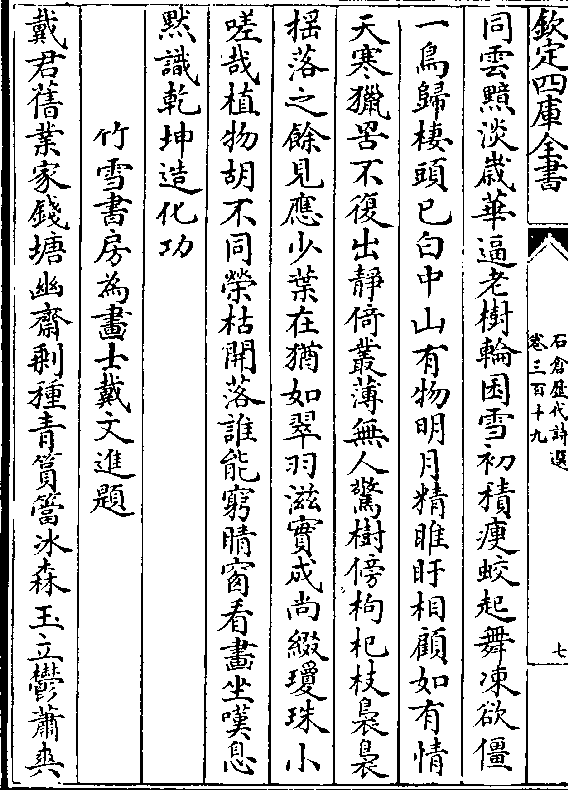 欽定四庫全書
石倉歷代詩選
卷三百十九
七
同雲黯淡歲華逼老樹輪囷雪初積瘦蛟起舞凍欲僵
一鳥歸棲頭已白中山有物明月精睢盱相顧如有情
天寒獵罟不復出靜倚叢薄無人驚樹傍枸杞枝裊裊
揺落之餘見應少葉在猶如翠羽滋實成尚綴瓊珠小
嗟哉植物胡不同榮枯開落誰能窮晴窗看畫坐嘆息
黙識乾坤造化功
竹雪書房為畫士戴文進題
戴君舊業家錢塘幽齋剰種青篔簹冰森玉立鬱蕭爽